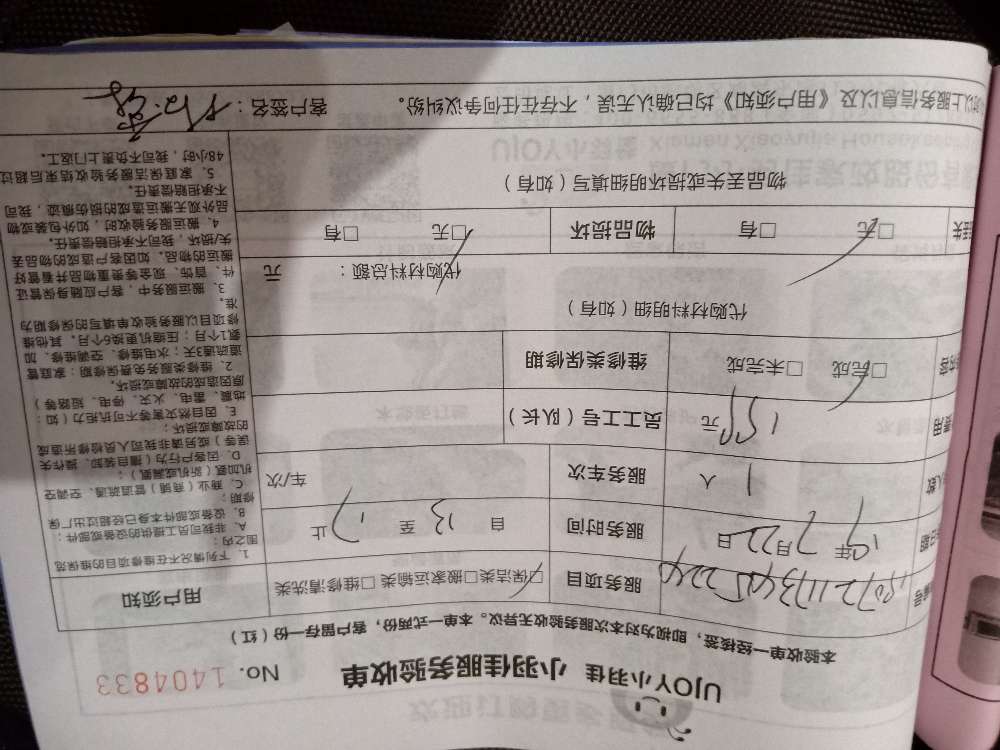 UJOY小羽佳 小羽佳服务验收单 No. 1404833
本验收单一经接签，即视为对本次服务验收无异议。本单一式两份，客户留存一份（红）
编号 服务项目 □保洁类□搬家运输类□维修清洗类 用户须知
日期 19年7月22日 服务时间 自 13 至 17 止
人数 1 人 服务车次 车/次
费用 元 员工工号（队长）
内容 □完成 □未完成 维修类保修期
代购材料明细（如有）
代购材料总额： 元
丢失 □无 □有 物品损坏 □无 □有
物品丢失或损坏明细填写（如有）
1．下列情况不在维修项目的维保范
围之内：
A．非我司员工提供的设备或部件；
B．设备或部件本身已经超过出厂保
修期；
C．商业（商铺）管道疏通、空调空
机加氨（新机或漏氨）；
D．因客户行为（擅自装卸、操作失
误等）或另请非我司人员检修所造成
的故障或损坏；
E．因自然灾害等不可抗拒力（如：
地震、雷电、火灾、停电、短路等）
原因造成的故障或损坏。
2．维修类服务免费保修期：家庭管
道疏通3天；水电维修、空调维修、加
氨1个月；压缩机更换6个月。其他维
修项目以服务验收单填写的保修期为
准。
3．搬运服务中，客户应随身保管证
件、首饰、现金等贵重物品并看管好
搬运的物品。如因客户造成的物品丢
失损坏，我司不承担赔偿责任。
4．搬运服务验收时，如外包装或物
品外观无搬运造成的损伤痕迹，我司
不承担赔偿责任。
5．家庭保洁服务验收结束后超过
48小时，我司不负责上门返工。
以上服务信息以及《用户须知》均已确认无误，不存在任何争议纠纷。 客户签名：